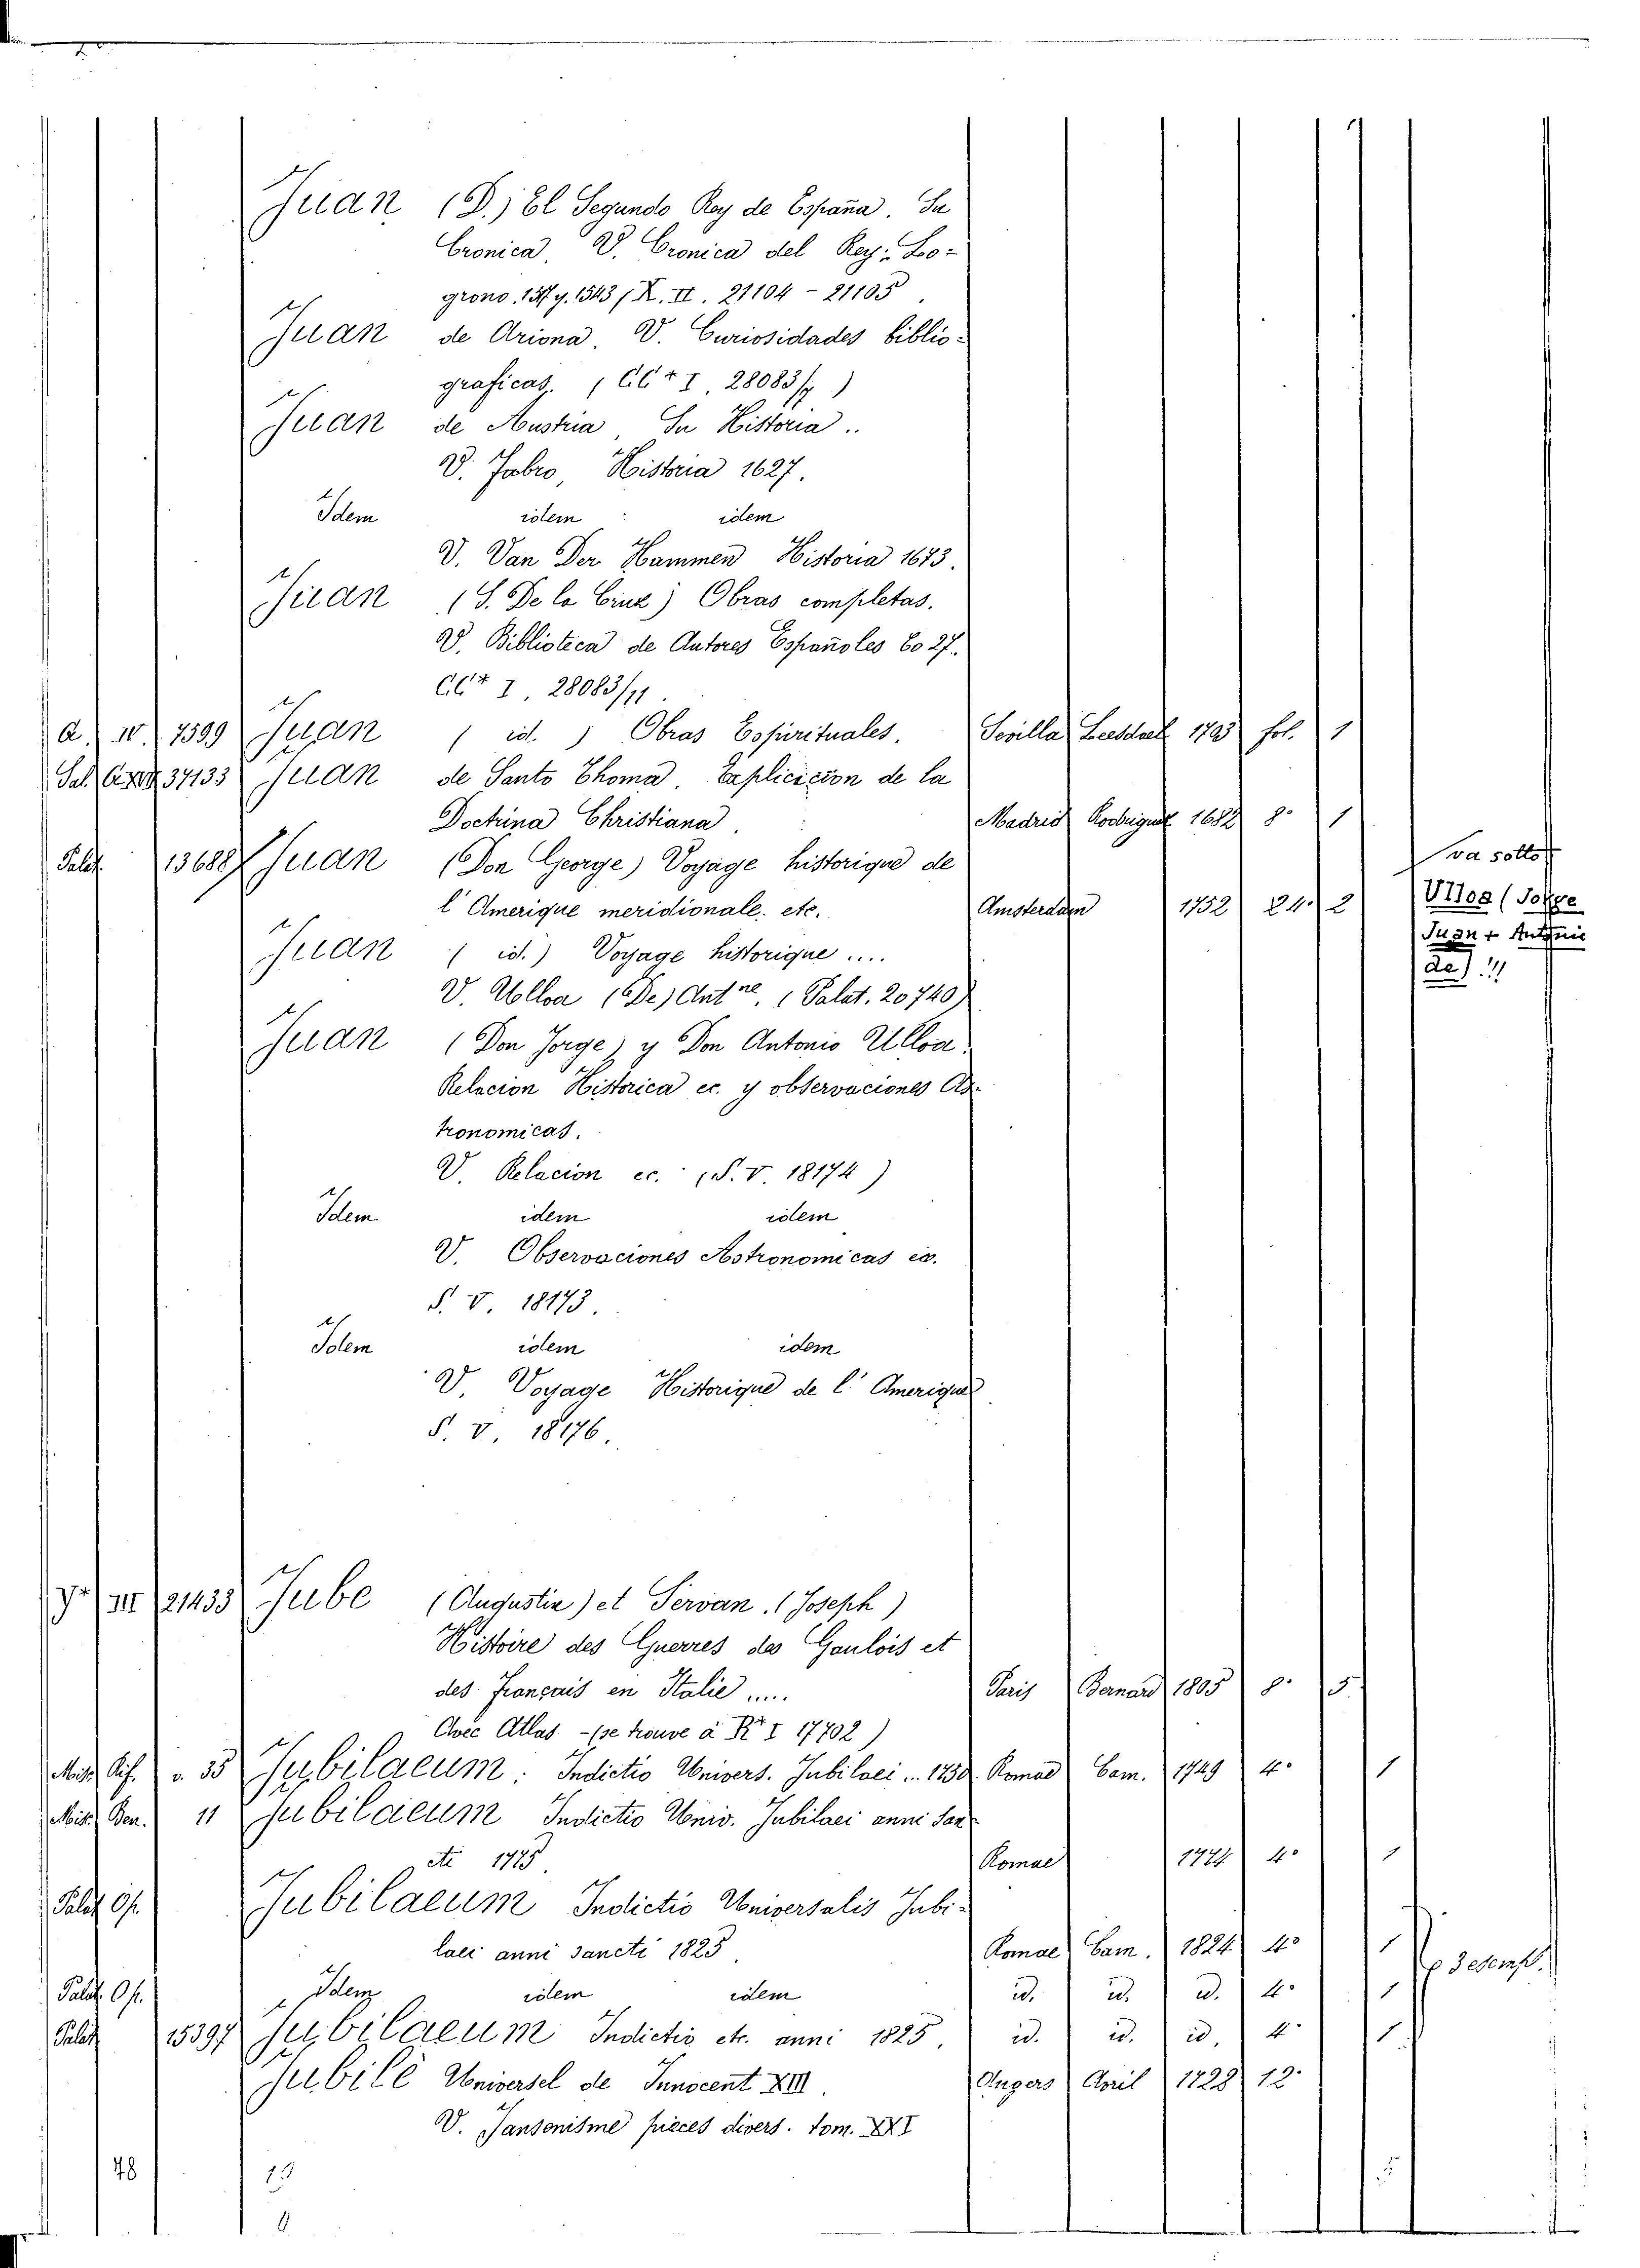 Juan (D.) El Segundo Rey de España. Su
Cronica, V. Cronica del Rey. Lo-
grono. 1517 y. 1543 (R. II. 21104 - 21105
Juan de Ariona, V. Curiosidades biblio-
graficas. ( CC + I 28083/7 )
Juan de Austria, Su Historia..
V. Fabro, Historia 1627.
Idem idem idem
V. Van Der Hammen Historia 1673.
Juan (S. De la Cruz) Obras completas.
V. Biblioteca de Autores Españoles to 27.
CC + I, 28083/11
a IV. 7599 Juan ( id. ) Obras Espirituales. Sevilla Leesdael 1703 fol. 1
Sal. 37133 Juan de Santo Thoma, Explicicion de la
Doctrina Christiana, Madrid Rodriguez 1682 8° 1
Palat. 13688 Juan (Don George) Voyage historique de
l'Amerique meridionale. etc. Amsterdam 1752 24. 2
va sotto
Ulloa (Jorge
Juan + Antonio
de) !!
Juan ( id. ) Voyage historique ....
V. Ulloa (De) Ant ne, (Palat. 20740)
Juan (Don Jorge) y Don Antonio Ulloa
Relacion Historica ec. y observaciones As-
tronomicas.
V. Relacion ec. (S. V. 18174)
Idem idem idem
V. Observaciones Astronomicas ec.
S. V. 18173.
Idem idem idem
V. Voyage Historique de l'Amerique
S. V. 18176.
y + III 21433 Jube (Augustin) et Servan. (Joseph)
Histoire des Guerres des Gaulois et
des Français en Italie ..... Paris Bernard 1805 8° 5
Avec Atlas - (se trouve à R + I 17702)
Misc. v. 35 Jubilaeum. Indictio Univers. Jubilaei ... 1750. Romae Cam. 1749 4° 1
Misc. Ben. 11 Jubilaeum Indictio Univ. Jubilaei anni san-
cti 1775 Romae 1774 4° 1
Palat. Op. Jubilaeum Indictio Universalis Jubi-
laei anni sancti 1825. Romae Cam. 1824 4° 1
Palat. Op. Idem idem idem id. id. id. 4° 1
3 esempl.
Palat. 15397 Jubilaeum Indictio etc. anni 1825, id. id. id. 4° 1
Jubilé Universel de Innocent XIII. Angers Avril 1728 12°
V. Jansenisme pieces divers. tom. XXI
48 13 5
9